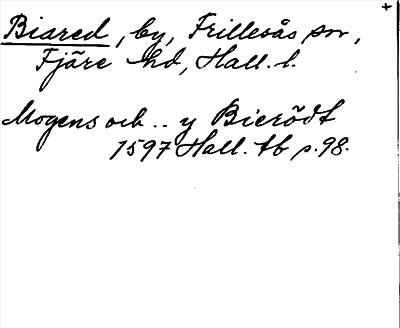 Biared, by, Frillesås sn,
Fjäre hd, Hall. l.
Mogens och .. y Bierödt
1597 Hall. tb s. 98.